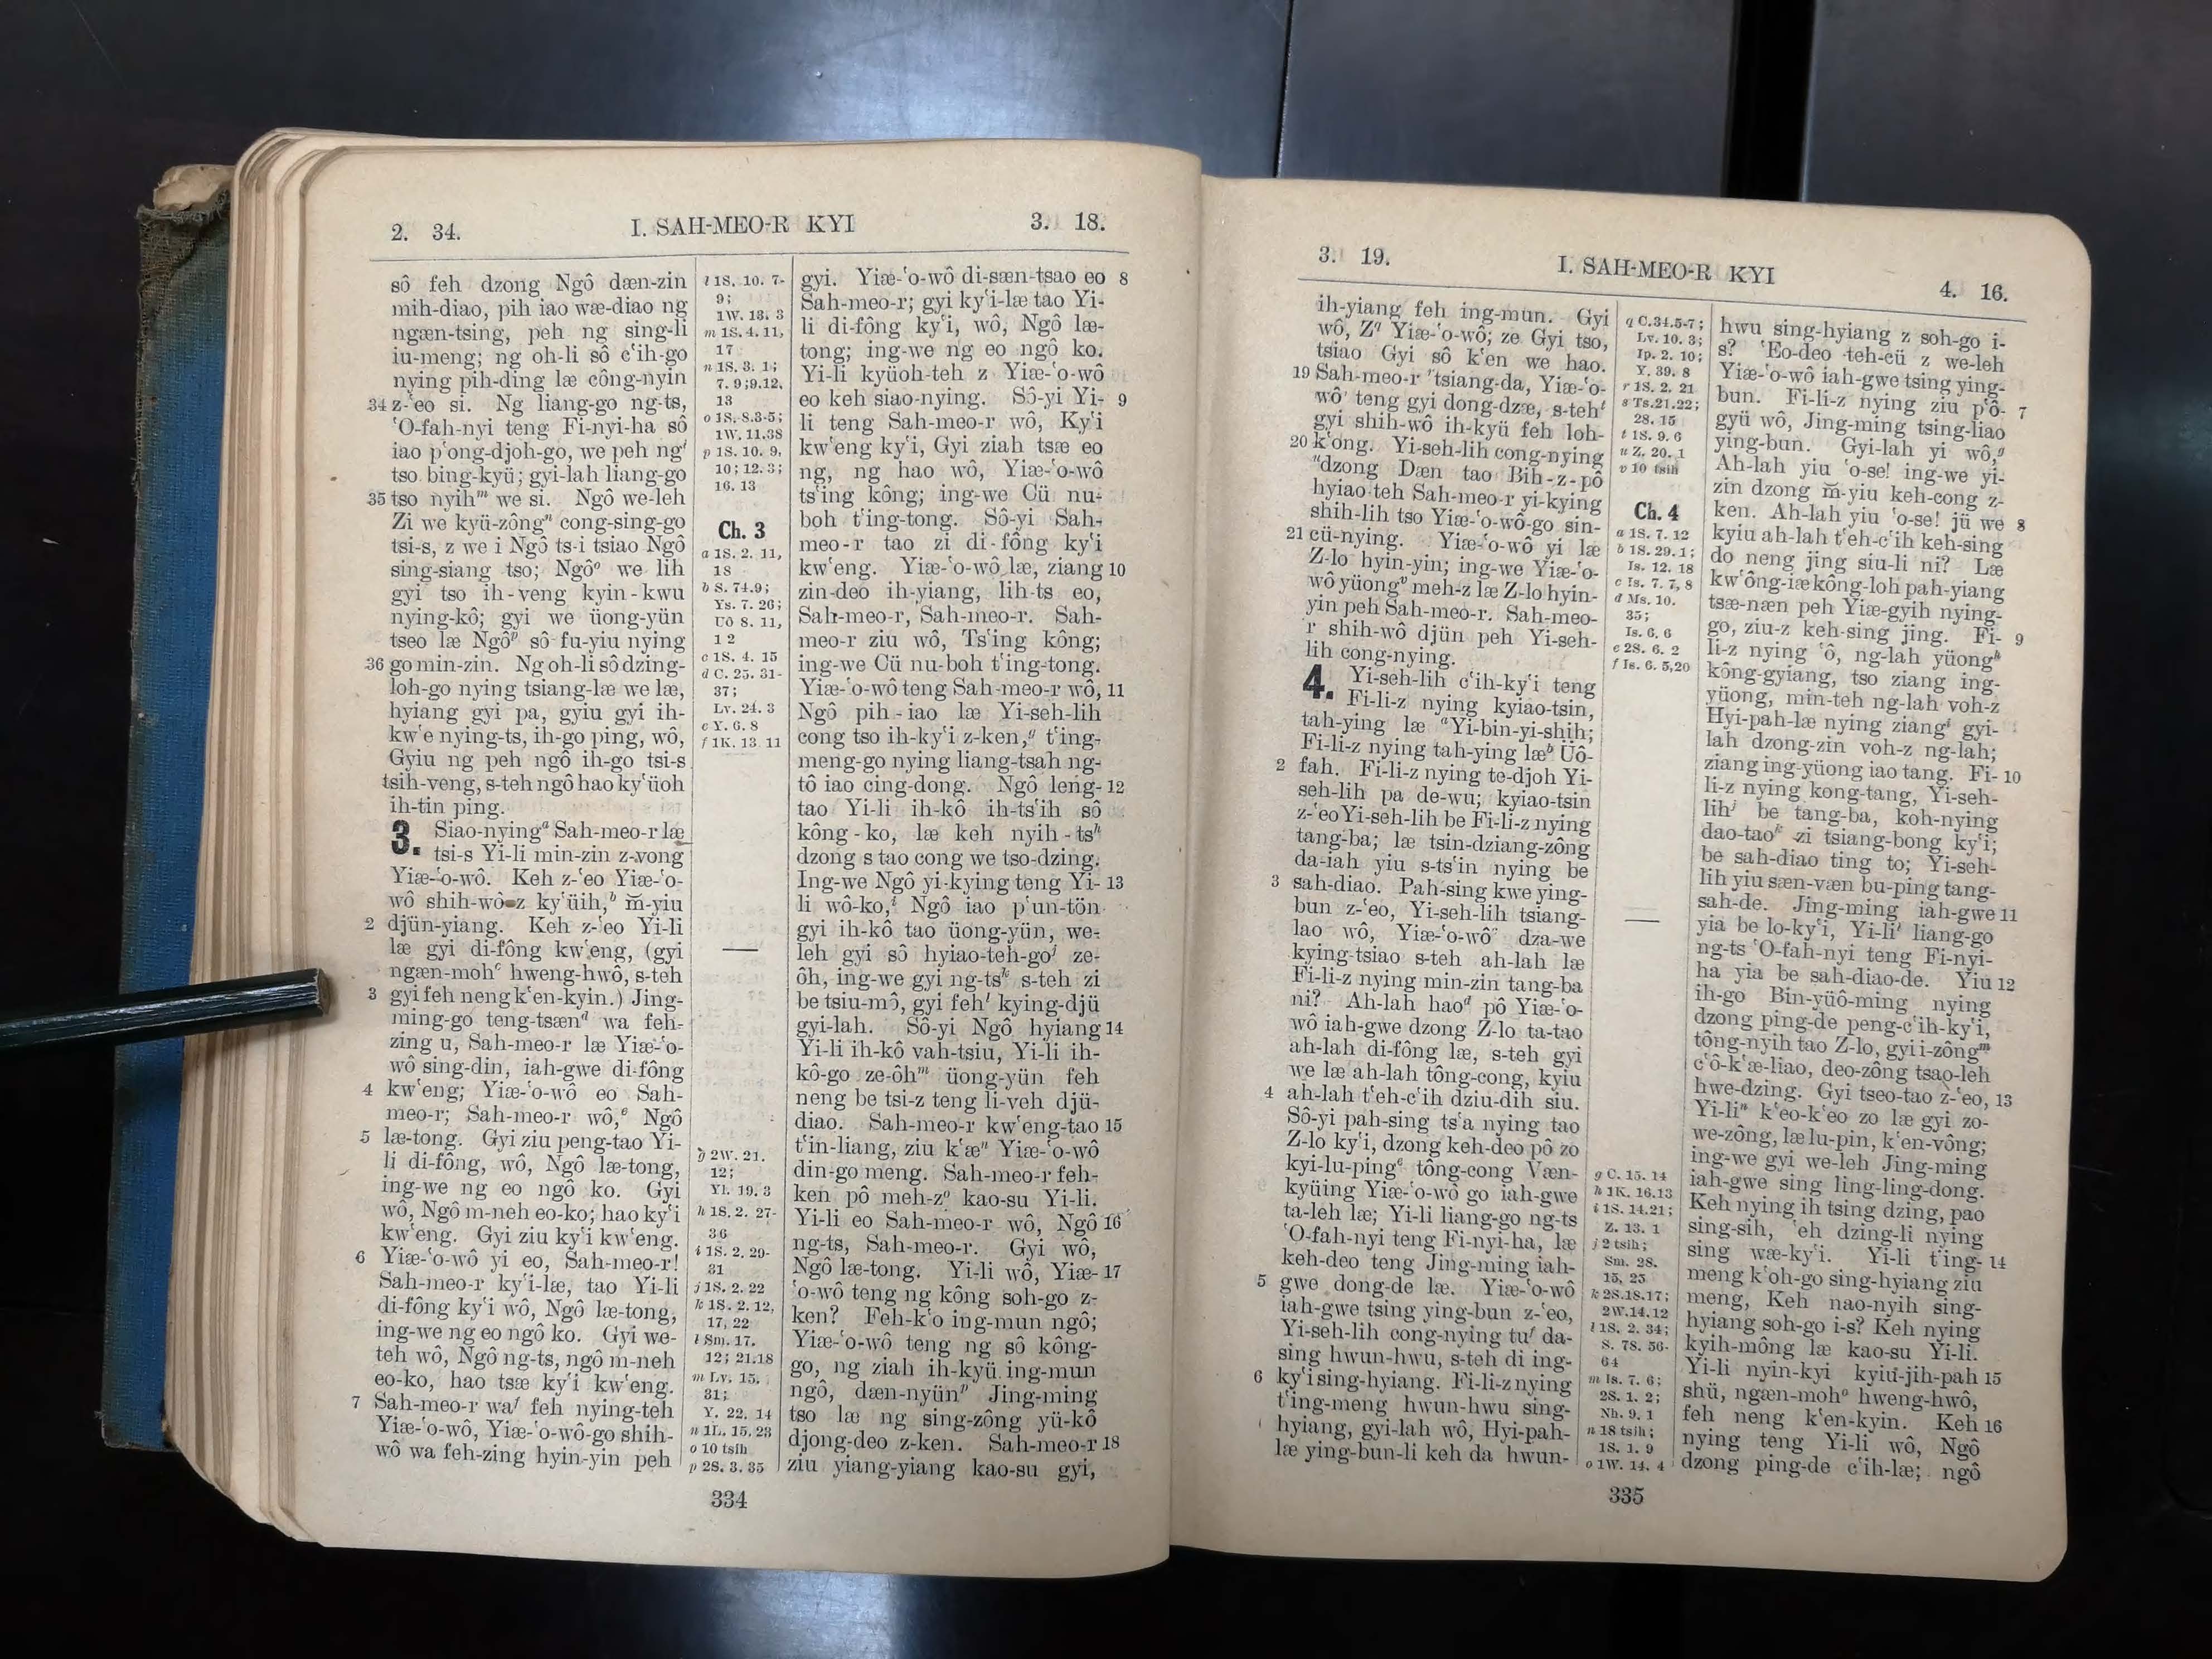 2. 34.
I. SAH-MEO-R KYI
3. 18.
sô feh dzong Ngô dæn-zin
mih-diao, pih iao wæ-diao ng
ngæn-tsing, peh ng sing-li
iu-meng; ng oh-li sô c‘ih-go
nying pih-ding læ công-nyin
34 z-‘eo si. Ng liang-go ng-ts,
‘O-fah-nyi teng Fi-nyi-ha sô
iao p‘ong-djoh-go, we peh ngˡ
tso bing-kyü; gyi-lah liang-go
35 tso nyihᵐ we si. Ngô we-leh
Zi we kyü-zôngⁿ cong-sing-go
tsi-s, z we i Ngô ts-i tsiao Ngô
sing-siang tso; Ngôᵒ we lih
gyi tso ih-veng kyin-kwu
nying-kô; gyi we üong-yün
tseo læ Ngôᵖ sô fu-yiu nying
36 go min-zin. Ng oh-li sô dzing-
loh-go nying tsiang-læ we læ,
hyiang gyi pa, gyiu gyi ih-
kw‘e nying-ts, ih-go ping, wô,
Gyiu ng peh ngô ih-go tsi-s
tsih-veng, s-teh ngô hao ky‘üoh
ih-tin ping.
3. Siao-nyingᵃ Sah-meo-r læ
tsi-s Yi-li min-zin z-vong
Yiæ-‘o-wô. Keh z-‘eo Yiæ-‘o-
wô shih-wô z ky‘üih,ᵇ m̄-yiu
2 djün-yiang. Keh z-‘eo Yi-li
læ gyi di-fông kw‘eng, (gyi
ngæn-mohᶜ hweng-hwô, s-teh
3 gyi feh neng k‘en-kyin.) Jing-
ming-go teng-tsænᵈ wa feh-
zing u, Sah-meo-r læ Yiæ-‘o-
wô sing-din, iah-gwe di-fông
4 kw‘eng; Yiæ-‘o-wô eo Sah-
meo-r; Sah-meo-r wô,ᵉ Ngô
5 læ-tong. Gyi ziu peng-tao Yi-
li di-fông, wô, Ngô læ-tong,
ing-we ng eo ngô ko. Gyi
wô, Ngô m-neh eo-ko; hao ky‘i
kw‘eng. Gyi ziu ky‘i kw‘eng.
6 Yiæ-‘o-wô yi eo, Sah-meo-r!
Sah-meo-r ky‘i-læ, tao Yi-li
di-fông ky‘i wô, Ngô læ-tong,
ing-we ng eo ngô ko. Gyi we-
teh wô, Ngô ng-ts, ngô m-neh
eo-ko, hao tsæ ky‘i kw‘eng.
7 Sah-meo-r waᶠ feh nying-teh
Yiæ-‘o-wô, Yiæ-‘o-wô-go shih-
wô wa feh-zing hyin-yin peh
l 1S. 10. 7-
9;
1W. 13. 3
m 1S. 4. 11,
17
n 1S. 3. 1;
7. 9; 9.12,
13
o 1S. 8.3-5;
1W. 11.38
p 1S. 10. 9,
10; 12. 3;
16. 13
Ch. 3
a 1S. 2. 11,
18
b S. 74.9;
Ys. 7. 26;
Uô 8. 11,
12
c 1S. 4. 15
d C. 25. 31-
37;
Lv. 24. 3
e Y. 6. 8
f 1K. 13. 11
g 2W. 21.
12;
Yl. 19. 3
h 1S. 2. 27-
36
i 1S. 2. 29-
31
j 1S. 2. 22
k 1S. 2. 12,
17, 22
l Sm. 17.
12; 21.18
m Lv. 15.
31;
Y. 22. 14
n 1L. 15. 23
o 10 tsih
p 2S. 3. 35
gyi. Yiæ-‘o-wô di-sæn-tsao eo 8
Sah-meo-r; gyi ky‘i-læ tao Yi-
li di-fông ky‘i, wô, Ngô læ-
tong; ing-we ng eo ngô ko.
Yi-li kyüoh-teh z Yiæ-‘o-wô
eo keh siao-nying. Sô-yi Yi- 9
li teng Sah-meo-r wô, Ky‘i
kw‘eng ky‘i, Gyi ziah tsæ eo
ng, ng hao wô, Yiæ-‘o-wô
ts‘ing kông; ing-we Cü nu-
boh t‘ing-tong. Sô-yi Sah-
meo-r tao zi di-fông ky‘i
kw‘eng. Yiæ-‘o-wô læ, ziang 10
zin-deo ih-yiang, lih-ts eo,
Sah-meo-r, Sah-meo-r. Sah-
meo-r ziu wô, Ts‘ing kông;
ing-we Cü nu-boh t‘ing-tong.
Yiæ-‘o-wô teng Sah-meo-r wô, 11
Ngô pih-iao læ Yi-seh-lih
cong tso ih-ky‘i z-ken,ᵍ t‘ing-
meng-go nying liang-tsah ng-
tô iao cing-dong. Ngô leng- 12
tao Yi-li ih-kô ih-ts‘ih sô
kông-ko, læ keh nyih-tsʰ
dzong s tao cong we tso-dzing.
Ing-we Ngô yi-kying teng Yi- 13
li wô-ko,ⁱ Ngô iao p‘un-tön
gyi ih-kô tao üong-yün, we-
leh gyi sô hyiao-teh-goʲ ze-
ôh, ing-we gyi ng-tsᵏ s-teh zi
be tsiu-mô, gyi fehˡ kying-djü
gyi-lah. Sô-yi Ngô hyiang 14
Yi-li ih-kô vah-tsiu, Yi-li ih-
kô-go ze-ôhᵐ üong-yün feh
neng be tsi-z teng li-veh djü-
diao. Sah-meo-r kw‘eng-tao 15
t‘in-liang, ziu k‘æⁿ Yiæ-‘o-wô
din-go meng. Sah-meo-r feh-
ken pô meh-zᵒ kao-su Yi-li.
Yi-li eo Sah-meo-r wô, Ngô 16
ng-ts, Sah-meo-r. Gyi wô,
Ngô læ-tong. Yi-li wô, Yiæ- 17
‘o-wô teng ng kông soh-go z-
ken? Feh-k‘o ing-mun ngô;
Yiæ-‘o-wô teng ng sô kông-
go, ng ziah ih-kyü ing-mun
ngô, dæn-nyünᵖ Jing-ming
tso læ ng sing-zông yü-kô
djong-deo z-ken. Sah-meo-r 18
ziu yiang-yiang kao-su gyi,
334
3. 19.
I. SAH-MEO-R KYI
4. 16.
ih-yiang feh ing-mun. Gyi
wô, Z𐞥 Yiæ-‘o-wô; ze Gyi tso,
tsiao Gyi sô k‘en we hao.
19 Sah-meo-r ʳtsiang-da, Yiæ-‘o-
wôˢ teng gyi dong-dzæ, s-tehᵗ
gyi shih-wô ih-kyü feh loh-
20 k‘ong. Yi-seh-lih cong-nying
ᵘdzong Dæn tao Bih-z-pô
hyiao-teh Sah-meo-r yi-kying
shih-lih tso Yiæ-‘o-wô-go sin-
21 cü-nying. Yiæ-‘o-wô yi læ
Z-lo hyin-yin; ing-we Yiæ-‘o-
wô yüongᵛ meh-z læ Z-lo hyin-
yin peh Sah-meo-r. Sah-meo-
r shih-wô djün peh Yi-seh-
lih cong-nying.
4. Yi-seh-lih c‘ih-ky‘i teng
Fi-li-z nying kyiao-tsin,
tah-ying læ ᵃYi-bin-yi-shih;
Fi-li-z nying tah-ying læᵇ Üô-
2 fah. Fi-li-z nying te-djoh Yi-
seh-lih pa de-wu; kyiao-tsin
z-‘eo Yi-seh-lih be Fi-li-z nying
tang-ba; læ tsin-dziang-zông
da-iah yiu s-ts‘in nying be
3 sah-diao. Pah-sing kwe ying-
bun z-‘eo, Yi-seh-lih tsiang-
lao wô, Yiæ-‘o-wôᶜ dza-we
kying-tsiao s-teh ah-lah læ
Fi-li-z nying min-zin tang-ba
ni? Ah-lah haoᵈ pô Yiæ-‘o-
wô iah-gwe dzong Z-lo ta-tao
ah-lah di-fông læ, s-teh gyi
we læ ah-lah tông-cong, kyiu
4 ah-lah t‘eh-c‘ih dziu-dih siu.
Sô-yi pah-sing ts‘a nying tao
Z-lo ky‘i, dzong keh-deo pô zo
kyi-lu-pingᵉ tông-cong Væn-
kyüing Yiæ-‘o-wô go iah-gwe
ta-leh læ; Yi-li liang-go ng-ts
‘O-fah-nyi teng Fi-nyi-ha, læ
keh-deo teng Jing-ming iah-
5 gwe dong-de læ. Yiæ-‘o-wô
iah-gwe tsing ying-bun z-‘eo,
Yi-seh-lih cong-nying tuᶠ da-
sing hwun-hwu, s-teh di ing-
6 ky‘i sing-hyiang. Fi-li-z nying
t‘ing-meng hwun-hwu sing-
hyiang, gyi-lah wô, Hyi-pah-
læ ying-bun-li keh da hwun-
q C.34.5-7;
Lv. 10. 3;
Ip. 2. 10;
Y. 39. 8
r 1S. 2. 21
s Ts.21.22;
28. 15
t 1S. 9. 6
u Z. 20. 1
v 10 tsih
Ch. 4
a 1S. 7. 12
b 1S. 29. 1;
Is. 12. 18
c Is. 7. 7, 8
d Ms. 10.
35;
Is. 6. 6
e 2S. 6. 2
f Is. 6. 5,20
g C. 15. 14
h 1K. 16.13
i 1S. 14.21;
Z. 13. 1
j 2 tsih;
Sm. 28.
15, 25
k 2S.18.17;
2W.14.12
l 1S. 2. 34;
S. 78. 56-
64
m Is. 7. 6;
2S. 1. 2;
Nh. 9. 1
n 18 tsih;
1S. 1. 9
o 1W. 14. 4
hwu sing-hyiang z soh-go i-
s? ‘Eo-deo teh-cü z we-leh
Yiæ-‘o-wô iah-gwe tsing ying-
bun. Fi-li-z nying ziu p‘ô- 7
gyü wô, Jing-ming tsing-liao
ying-bun. Gyi-lah yi wô,ᵍ
Ah-lah yiu ‘o-se! ing-we yi-
zin dzong m̄-yiu keh-cong z-
ken. Ah-lah yiu ‘o-se! jü we 8
kyiu ah-lah t‘eh-c‘ih keh-sing
do neng jing siu-li ni? Læ
kw‘ông-iæ kông-loh pah-yiang
tsæ-næn peh Yiæ-gyih nying-
go, ziu-z keh-sing jing. Fi- 9
li-z nying ‘ô, ng-lah yüongʰ
kông-gyiang, tso ziang ing-
yüong, min-teh ng-lah voh-z
Hyi-pah-læ nying ziangⁱ gyi-
lah dzong-zin voh-z ng-lah;
ziang ing-yüong iao tang. Fi- 10
li-z nying kong-tang, Yi-seh-
lihʲ be tang-ba, koh-nying
dao-taoᵏ zi tsiang-bong ky‘i;
be sah-diao ting to; Yi-seh-
lih yiu sæn-væn bu-ping tang-
sah-de. Jing-ming iah-gwe 11
yia be lo-ky‘i, Yi-liˡ liang-go
ng-ts ‘O-fah-nyi teng Fi-nyi-
ha yia be sah-diao-de. Yiu 12
ih-go Bin-yüô-ming nying
dzong ping-de peng-c‘ih-ky‘i,
tông-nyih tao Z-lo, gyi i-zôngᵐ
c‘ô-k‘æ-liao, deo-zông tsao-leh
hwe-dzing. Gyi tseo-tao z-‘eo, 13
Yi-liⁿ k‘eo-k‘eo zo læ gyi zo-
we-zông, læ lu-pin, k‘en-vông;
ing-we gyi we-leh Jing-ming
iah-gwe sing ling-ling-dong.
Keh nying ih tsing dzing, pao
sing-sih, ‘eh dzing-li nying
sing wæ-ky‘i. Yi-li t‘ing- 14
meng k‘oh-go sing-hyiang ziu
meng, Keh nao-nyih sing-
hyiang soh-go i-s? Keh nying
kyih-mông læ kao-su Yi-li.
Yi-li nyin-kyi kyiu-jih-pah 15
shü, ngæn-mohᵒ hweng-hwô,
feh neng k‘en-kyin. Keh 16
nying teng Yi-li wô, Ngô
dzong ping-de c‘ih-læ; ngô
335